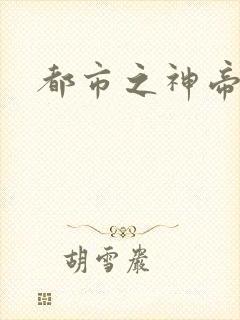 都市之神帝
胡雪巖